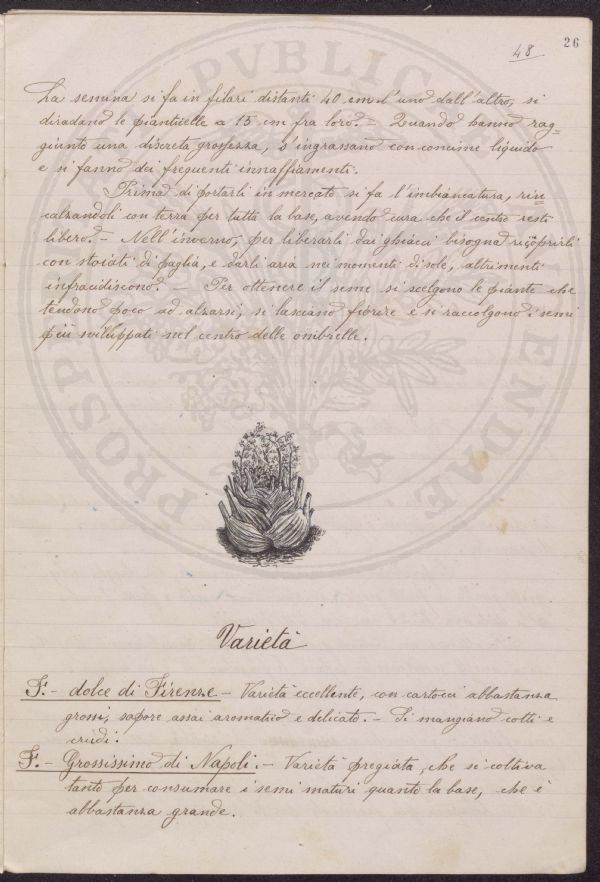 48
26
La semina si fa in filari distanti 40 cm. l'uno dall'altro, si
diradano le pianticelle a 15 cm fra loro. - Quando hanno rag=
giunto una discreta grossezza, s'ingrassano con concime liquido
e si fanno dei frequenti innaffiamenti.
Prima di portarli in mercato si fa l'imbiancatura, rin=
calzandoli con terra per tutta la base, avendo cura che il centro resti
libero. - Nell'inverno, per liberarli dai ghiacci bisogna ricoprirli
con stoiati di paglia, e darli aria nei momenti di sole, altrimenti
infracidiscono. - Per ottenere il seme si scelgono le piante che
tendono poco ad alzarsi, si lasciano fiorire e si raccolgono i semi
più sviluppati nel centro delle ombrelle.
Varietà
F. - dolce di Firenze - Varietà eccellente, con cartocci abbastanza
grossi, sapore assai aromatico e delicato. - Si mangiano cotti e
crudi.
F. - Grossissimo di Napoli. - Varietà pregiata, che si coltiva
tanto per consumare i semi maturi quanto la base, che è
abbastanza grande.